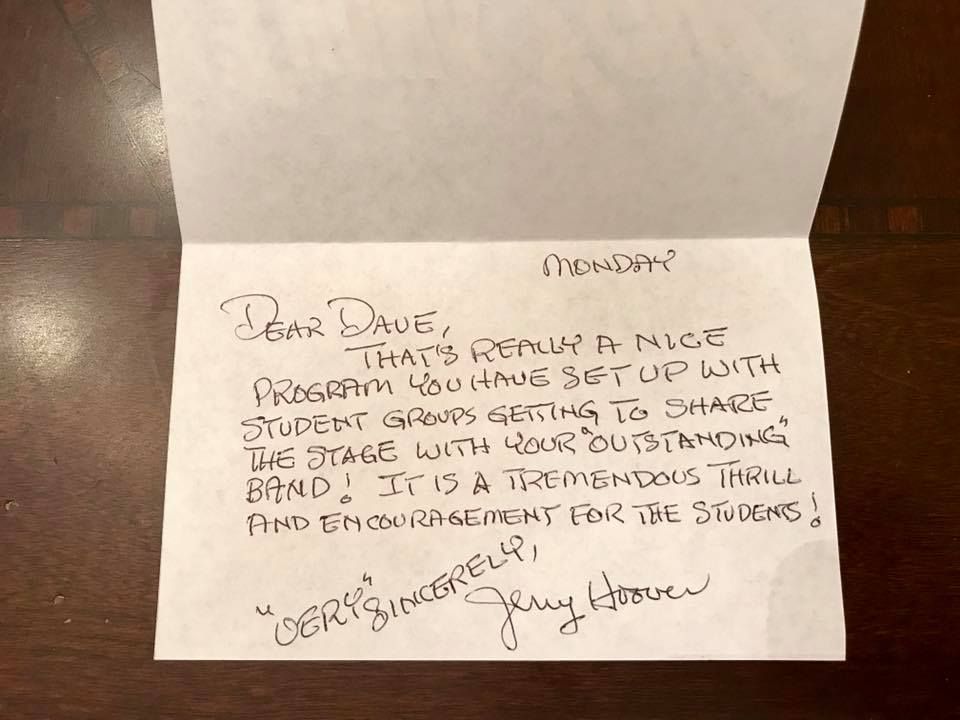 MONDAY
DEAR DAVE,
THAT'S REALLY A NICE
PROGRAM YOU HAVE SET UP WITH
STUDENT GROUPS GETTING TO SHARE
THE STAGE WITH YOUR "OUTSTANDING"
BAND! IT IS A TREMENDOUS THRILL
AND ENCOURAGEMENT FOR THE STUDENTS!
"VERY" SINCERELY,
Jerry Hoover